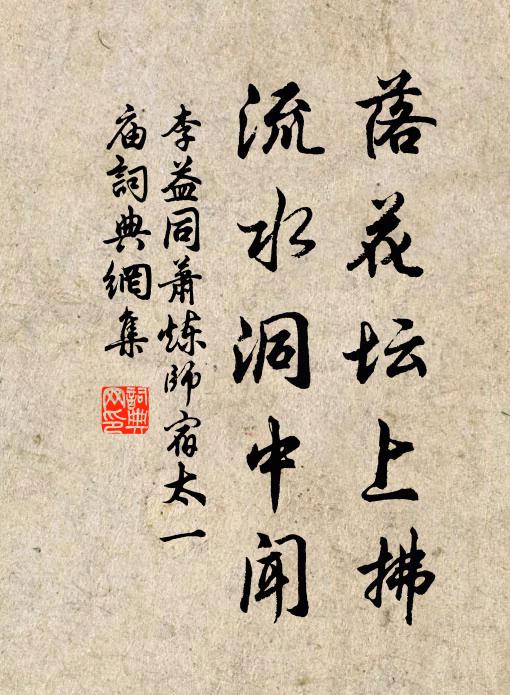 落花坛上拂
流水洞中闻
李益同萧炼师宿太一
庙詞典網集
詞典网印